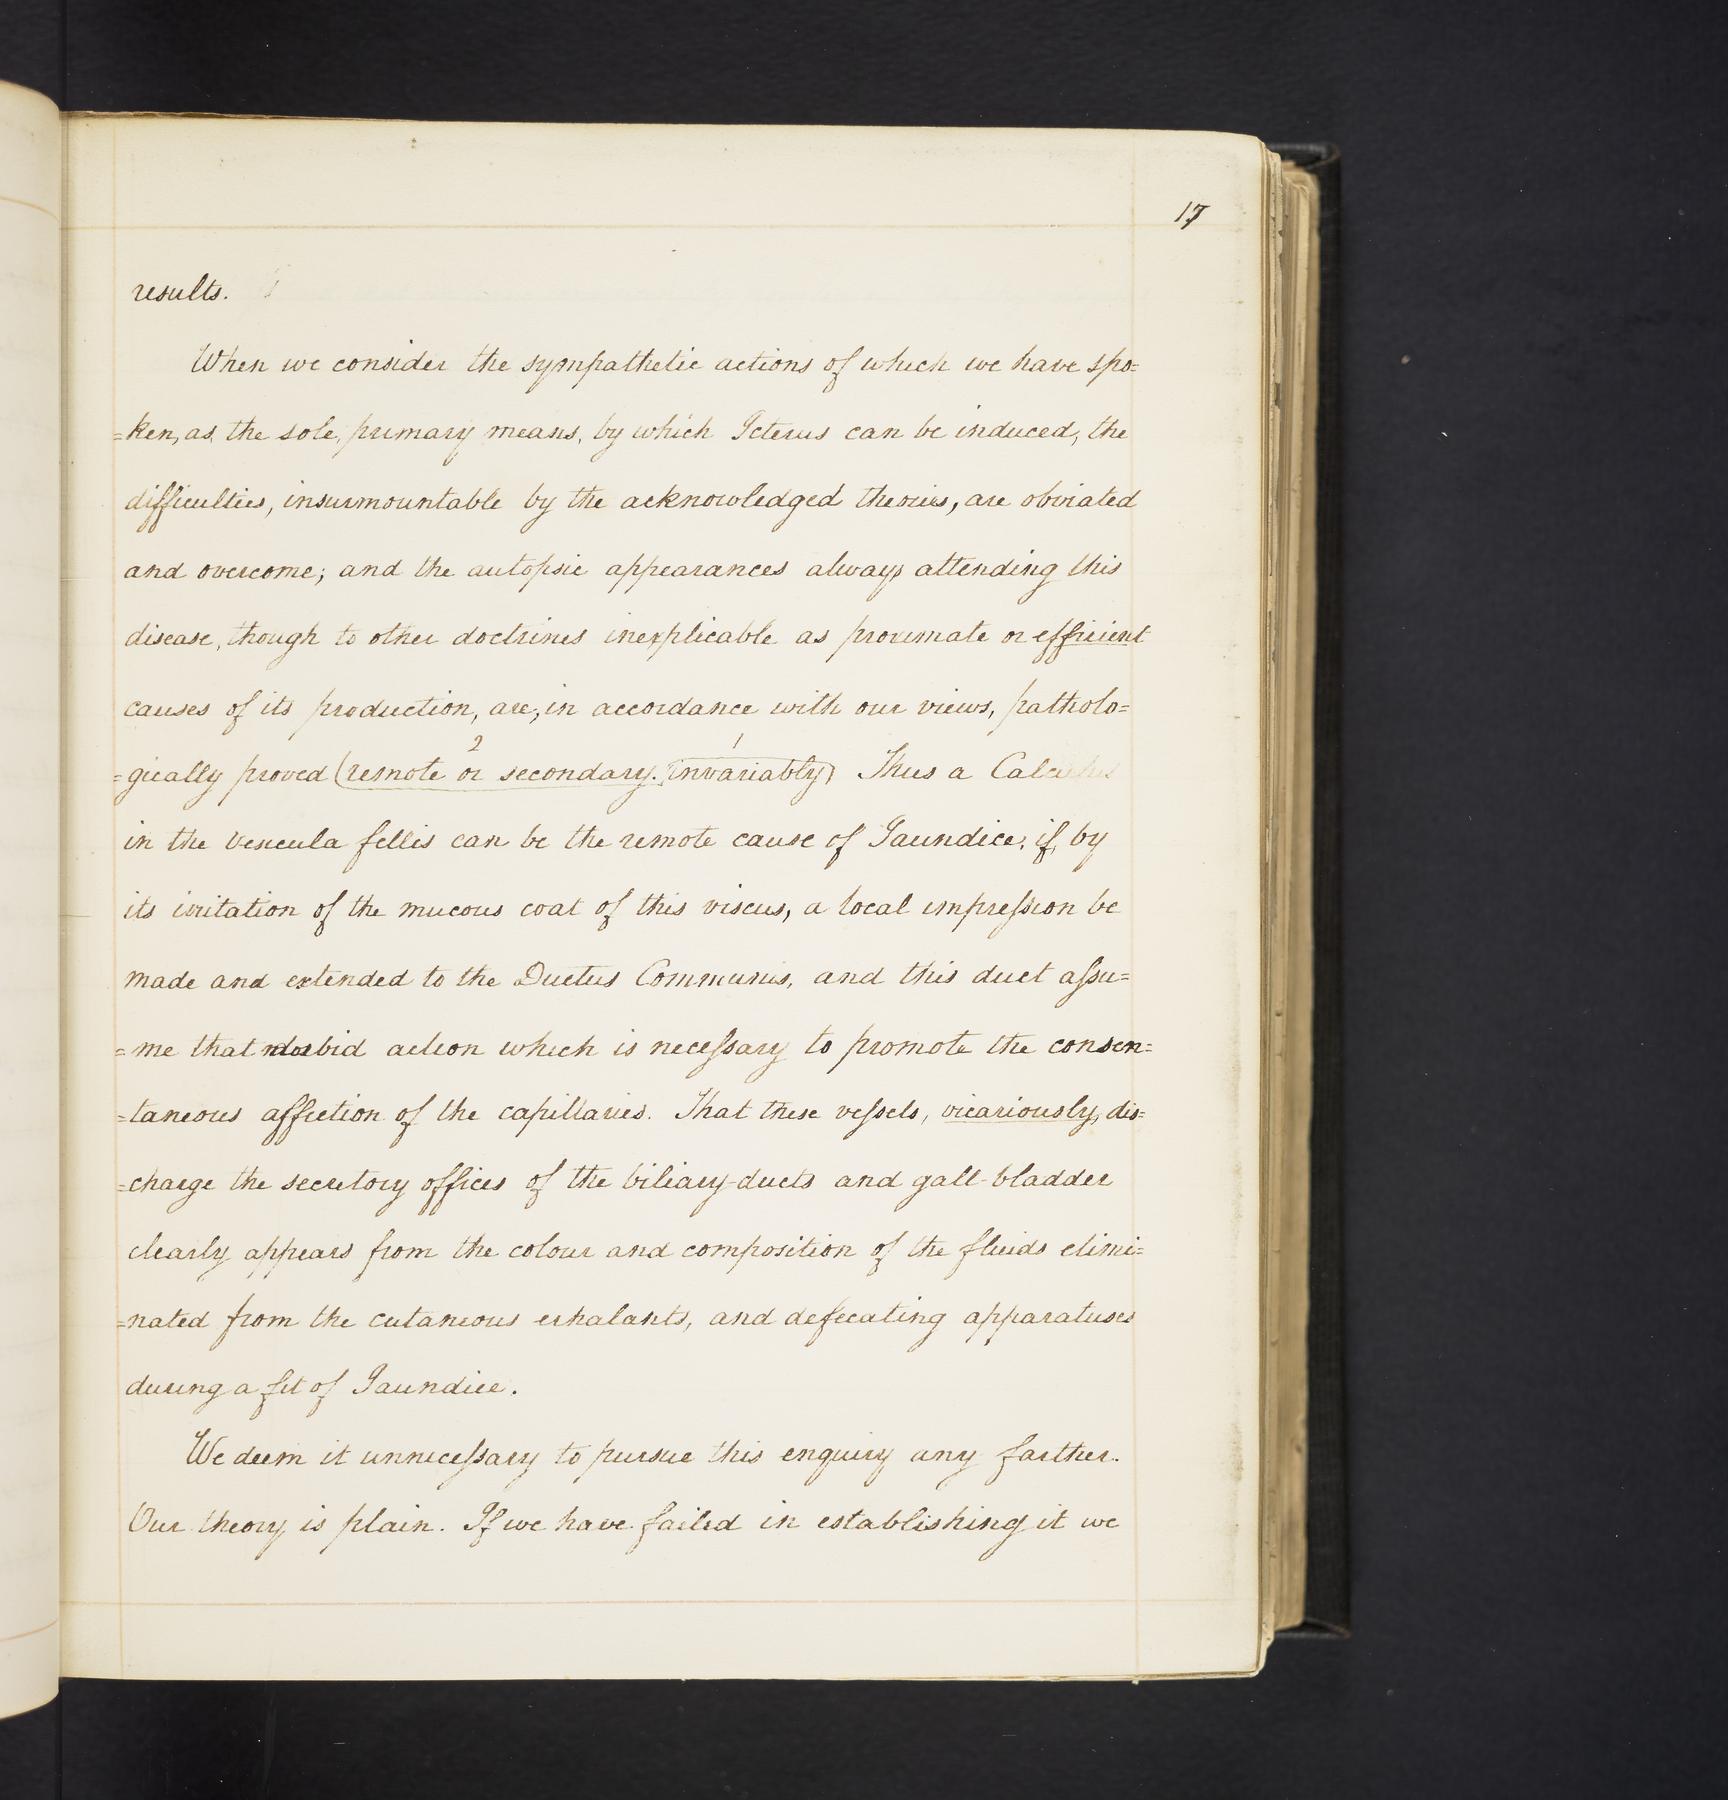 17
results.
When we consider the sympathetic actions of which we have spo=
=ken, as the sole, primary means, by which Icterus can be induced, the
difficulties, insurmountable by the acknowledged theories, are obviated
and overcome; and the autopsic appearances always attending this
disease, though to other doctrines inexplicable as proximate or efficient
causes of its production, are, in accordance with our views, patholo=
2 1
=gically proved (remote or secondary. (invariably) Thus a Calculus
in the vesicula fellis can be the remote cause of Jaundice, if, by
its irritation of the mucous coat of this viscus, a local impression be
made and extended to the Ductus Communis, and this duct assu=
=me that morbid action which is necessary to promote the consen=
=taneous affection of the capillaries. That these vessels, vicariously, dis=
=charge the secretory offices of the biliary-ducts and gall-bladder
clearly appears from the colour and composition of the fluids elimi=
=nated from the cutaneous exhalants, and defecating apparatuses
during a fit of Jaundice.
We deem it unnecessary to pursue this enquiry any farther.
Our theory is plain. If we have failed in establishing it we